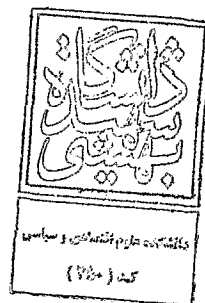 دانشگاه
شهید
بهشتی
دانشکده علوم اقتصادی و سیاسی